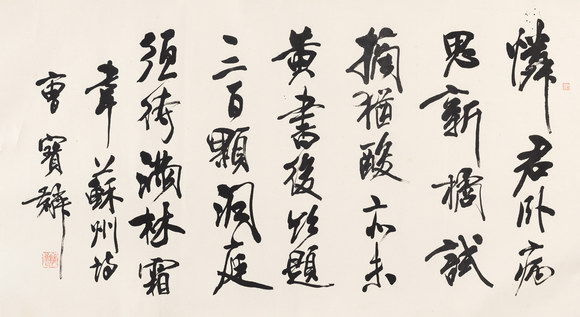 憐君卧病
思新橘試
摘猶酸亦未
黄書後欲題
三百顆洞庭
須待滿林霜
韋蘇州詩
曹寶麟